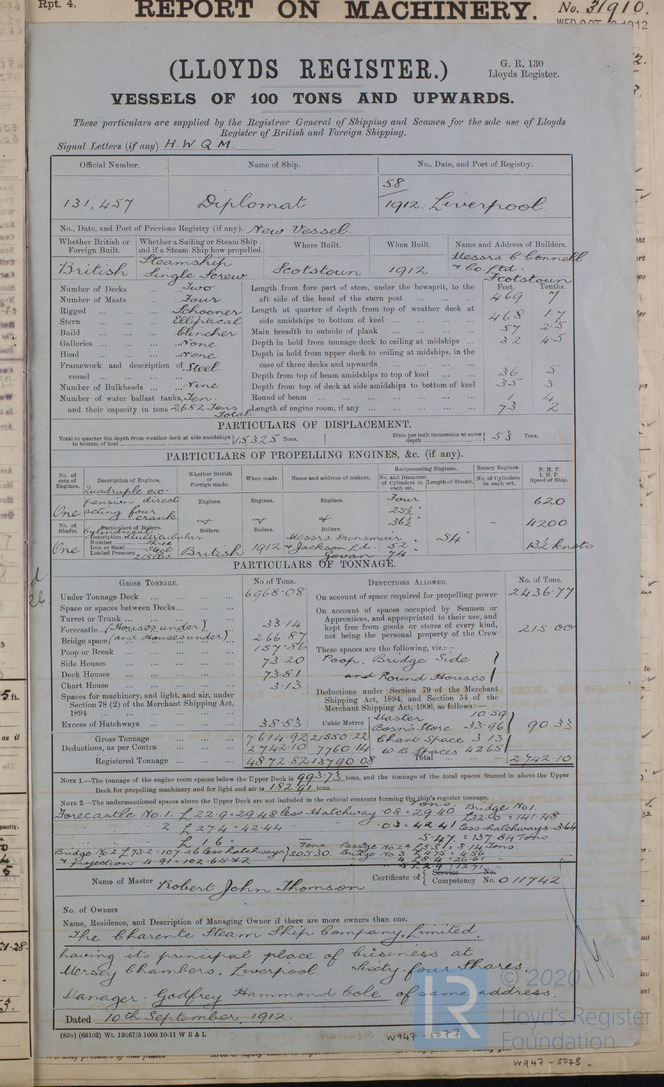 Rpt. 4.
REPORT ON MACHINERY.
No. 31910.
WED. OCT 1912
(LLOYDS REGISTER.)
G. R. 130
Lloyds Register.
VESSELS OF 100 TONS AND UPWARDS.
These particulars are supplied by the Registrar General of Shipping and Seamen for the sole use of Lloyds
Register of British and Foreign Shipping.
Signal Letters (if any) H. W Q M
Official Number. Name of Ship. No., Date, and Port of Registry.
131,457 Diplomat 58/1912. Liverpool
No., Date, and Port of Previous Registry (if any). New Vessel.
Whether British or Foreign Built. Whether a Sailing or Steam Ship; and if a Steam Ship how propelled. Where Built. When Built. Name and Address of Builders.
British Steamship Single Screw Scotstoun 1912 Messrs C Connell & Co Ltd. Scotstoun
Feet. Tenths.
Number of Decks Two Length from fore part of stem, under the bowsprit, to the
Number of Masts Four aft side of the head of the stern post 469 7
Rigged Schooner Length at quarter of depth from top of weather deck at
Stern Elliptical side amidships to bottom of keel 468 17
Build Clincher Main breadth to outside of plank 57 25
Galleries None Depth in hold from tonnage deck to ceiling at midships 32 45
Head None Depth in hold from upper deck to ceiling at midships, in the
Framework and description of vessel Steel case of three decks and upwards
Depth from top of beam amidships to top of keel 36 5
Number of Bulkheads Nine Depth from top of deck at side amidships to bottom of keel 35 3
Number of water ballast tanks, Ten Round of beam 1 4
and their capacity in tons 2682 Tons Total Length of engine room, if any 73 2
PARTICULARS OF DISPLACEMENT.
Total to quarter the depth from weather deck at side amidships to bottom of keel 15325 Tons. Ditto per inch immersion at same depth 53 Tons.
PARTICULARS OF PROPELLING ENGINES, &c. (if any).
No. of sets of Engines. Description of Engines. Whether British or Foreign made. When made. Name and address of makers. Reciprocating Engines. Rotary Engines. N. H. P. I. H. P. Speed of Ship.
No. and Diameter of Cylinders in each set. Length of Stroke. No. of Cylinders in each set.
One Quadruple expansion direct acting four crank Engines. Engines. Engines. Four 25½" 36½" 620
No. of Shafts. Particulars of Boilers. Boilers. Boilers. Boilers. 4200
Description Cylindrical Multitubular
Number Three
Iron or Steel Steel
Loaded Pressure 215 lbs
One British 1912 & Jackson Ld. Govan 52 74 54 13½ knots
PARTICULARS OF TONNAGE.
GROSS TONNAGE. No of Tons. DEDUCTIONS ALLOWED. No. of Tons.
Under Tonnage Deck 6968.08 On account of space required for propelling power 2436.77
Space or spaces between Decks On account of spaces occupied by Seamen or
Turret or Trunk Apprentices, and appropriated to their use, and
Forecastle (Houses under) 33.14 kept free from goods or stores of every kind,
Bridge space (and Houses under) 266.87 not being the personal property of the Crew 215.00
Poop or Break 157.86 These spaces are the following, viz:—
Side Houses 73.20 Poop, Bridge Side
Deck Houses 73.81 and Round Houses
Chart House 3.13
Spaces for machinery, and light, and air, under Section 78 (2) of the Merchant Shipping Act, 1894
Deductions under Section 79 of the Merchant Shipping Act, 1894, and Section 54 of the Merchant Shipping Act, 1906, as follows:—
Excess of Hatchways 38.83 Cubic Metres Master 10.59
Bosn's Store 33.96 90.33
Gross Tonnage 7614.92 21550.22 Chart Space 3.13
Deductions, as per Contra 2742.10 7760.14 W.B. Spaces 42.65
Registered Tonnage 4872.82 13790.08 Total 2742.10
NOTE 1.—The tonnage of the engine room spaces below the Upper Deck is 993.73 tons, and the tonnage of the total spaces framed in above the Upper
Deck for propelling machinery and for light and air is 182.91 tons.
NOTE 2.—The undermentioned spaces above the Upper Deck are not included in the cubical contents forming the ship's register tonnage.
Name of Master Robert John Thomson Certificate of Service Competency No. 011742
No. of Owners
Name, Residence, and Description of Managing Owner if there are more owners than one.
The Charente Steam Ship Company, Limited,
having its principal place of business at
Mersey Chambers, Liverpool Sixty four Shares.
Manager. Godfrey Hammond Cole of same address.
Dated 10th September, 1912.
(830) (66102) Wt. 19567/3 1000 10-11 W B & L
W947-0077
W947-0078
© 2020
LR
Lloyd's Register
Foundation